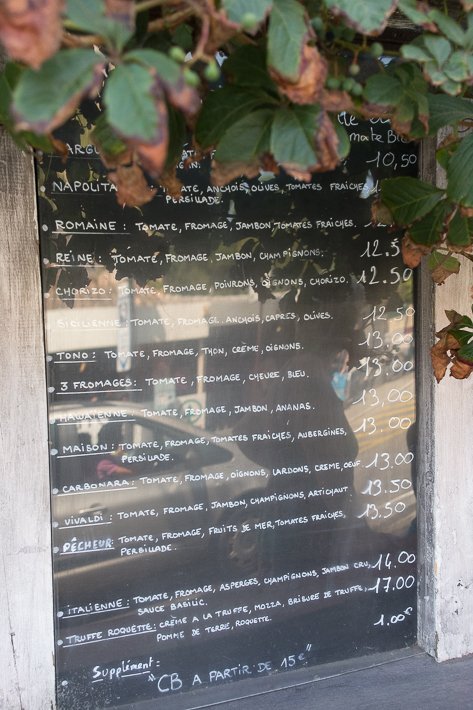 mate Bi
ARG 10,50
NAPOLITA , ANCHOIS, OLIVES, TOMATES FRAICHES
PERSILLADE.
ROMAINE : TOMATE, FROMAGE, JAMBON, TOMATES FRAICHES.
REINE : TOMATE, FROMAGE, JAMBON, CHAMPIGNONS. 12.5
CHORIZO : TOMATE, FROMAGE, POIVRONS, OIGNONS, CHORIZO. 12.50
SICILIENNE : TOMATE, FROMAGE, ANCHOIS, CAPRES, OLIVES. 12.50
TONO : TOMATE, FROMAGE, THON, CRÈME, OIGNONS. 13.00
3 FROMAGES : TOMATE, FROMAGE, CHEVRE, BLEU. 13.00
HAWAIENNE : TOMATE, FROMAGE, JAMBON, ANANAS. 13,00
MAISON : TOMATE, FROMAGE, TOMATES FRAICHES, AUBERGINES, 13.00
PERSILLADE.
CARBONARA : TOMATE, FROMAGE, OIGNONS, LARDONS, CREME, OEUF. 13.00
VIVALDI : TOMATE, FROMAGE, JAMBON, CHAMPIGNONS, ARTICHAUT. 13.50
PÊCHEUR : TOMATE, FROMAGE, FRUITS DE MER, TOMATES FRAICHES, 13.50
PERSILLADE.
ITALIENNE : TOMATE, FROMAGE, ASPERGES, CHAMPIGNONS, JAMBON CRU, 14.00
SAUCE BASILIC.
TRUFFE ROQUETTE : CRÈME A LA TRUFFE, MOZZA, BRISURE DE TRUFFE, 17.00
POMME DE TERRE, ROQUETTE.
Supplément : 1.00€
"CB A PARTIR DE 15€"